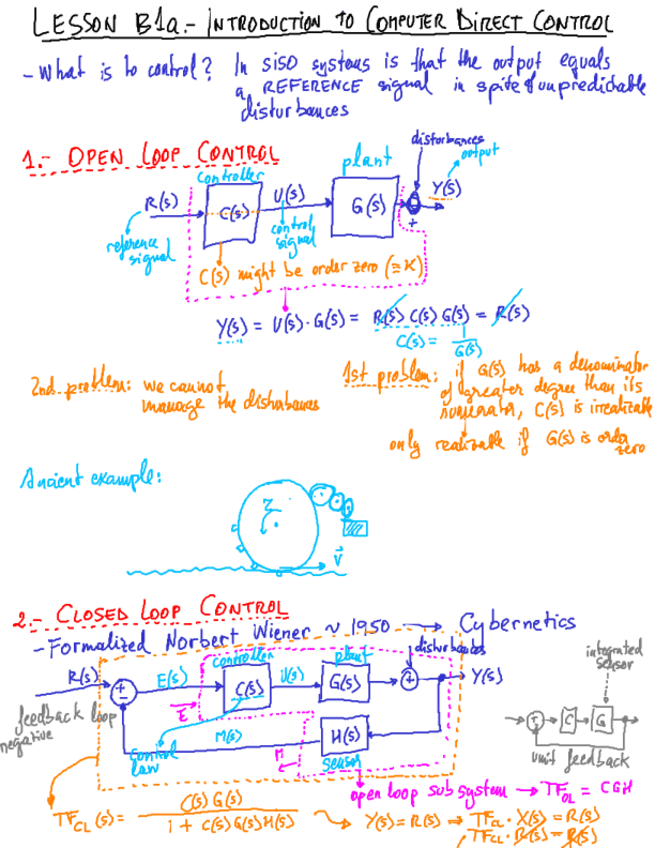 LESSON B1a.- INTRODUCTION TO COMPUTER DIRECT CONTROL
- What is to control? In SISO systems is that the output equals
a REFERENCE signal in spite of unpredictable
disturbances
1.- OPEN LOOP CONTROL
controller
plant
disturbances
output
R(s)
C(s)
U(s)
G(s)
Y(s)
+
reference
signal
control
signal
C(s) might be order zero (≡K)
Y(s) = U(s)·G(s) = R(s) C(s) G(s) = R(s)
C(s) = 1/G(s)
2nd problem: we cannot
manage the disturbances
1st problem: if G(s) has a denominator
of greater degree than its
numerator, C(s) is irrealizable
only realizable if G(s) is order
zero
Ancient example:
V
2.- CLOSED LOOP CONTROL
- Formalized Norbert Wiener ~ 1950 → Cybernetics
controller
plant
disturbances
integrated
sensor
R(s)
+
-
E(s)
C(s)
U(s)
G(s)
+
Y(s)
feedback loop
negative
E
M(s)
H(s)
C
G
control
law
M
sensor
unit feedback
open loop subsystem → TF_OL = CGH
TF_CL(s) = C(s) G(s) / 1 + C(s) G(s) H(s)
Y(s) = R(s) → TF_CL · X(s) = R(s)
TF_CL · R(s) = R(s)